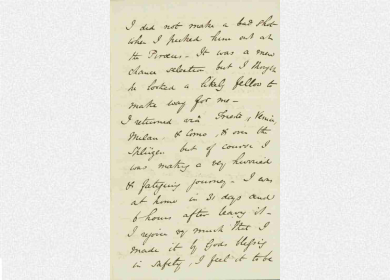 I did not make a bad shot
when I picked him out at
the Piræus - It was a mere
chance selection but I thought
he looked a likely fellow to
make way for me -
I returned via Trieste, Venice,
Milan, & Como, & over the
Splügen but of course I
was making a very hurried
& fatiguing journey - I was
at home in 21 days and
6 hours after leaving it -
I rejoice very much that I
made it by Gods blessing
in safety, I feel it to be